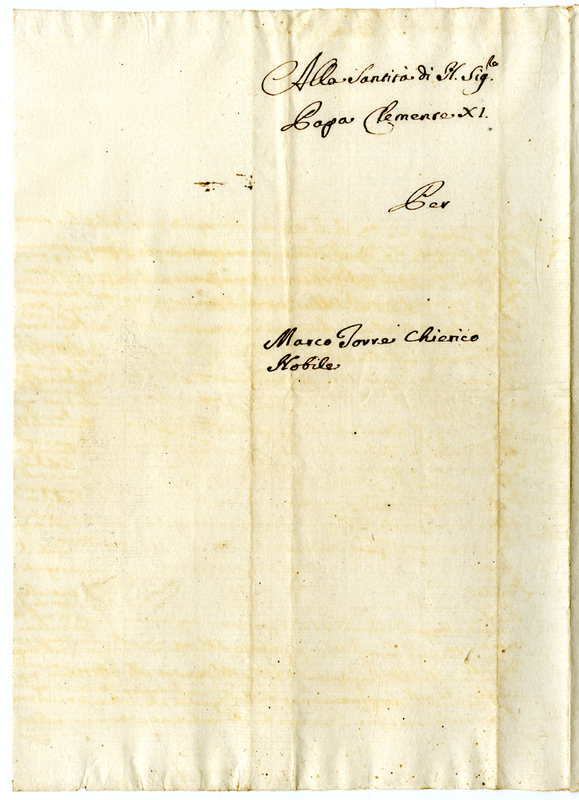 Alla Santità di N. Sig.re
Papa Clemente XI.
Per
Marco Torre Chierico
Nobile